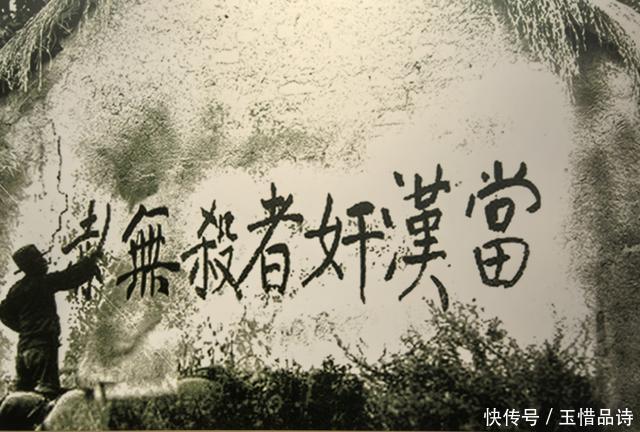 當漢奸者殺無赦
快传号 / 玉惜品诗